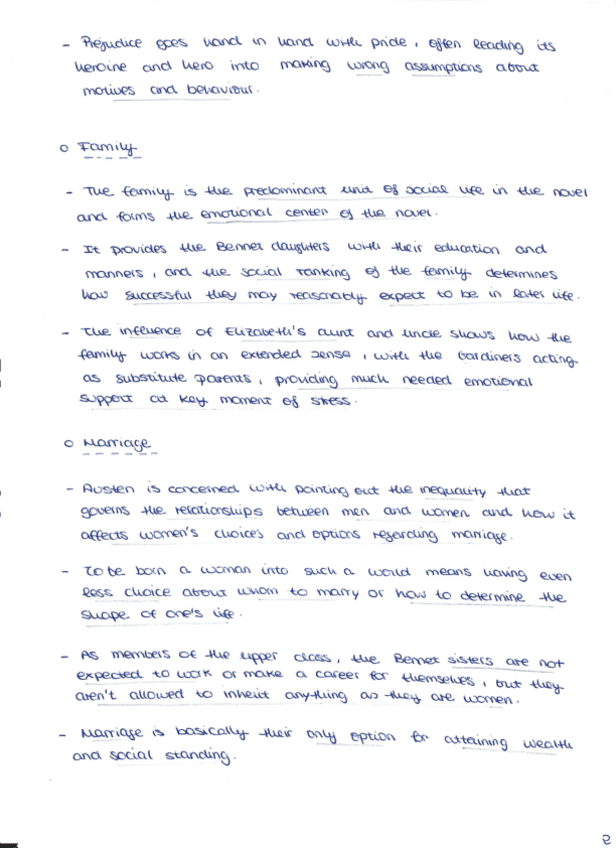 - Prejudice goes hand in hand with pride, often leading its
heroine and hero into making wrong assumptions about
motives and behaviour.
o Family
- The family is the predominant unit of social life in the novel
and forms the emotional center of the novel.
- It provides the Bennet daughters with their education and
manners, and the social ranking of the family determines
how successful they may reasonably expect to be in later life.
- The influence of Elizabeth's aunt and uncle shows how the
family works in an extended sense, with the Gardiners acting
as substitute parents, providing much needed emotional
support at key moment of stress.
o Marriage
- Austen is concerned with pointing out the inequality that
governs the relationships between men and women and how it
affects women's choices and options regarding marriage.
- To be born a woman into such a world means having even
less choice about whom to marry or how to determine the
shape of one's life.
- As members of the upper class, the Bennet sisters are not
expected to work or make a career for themselves, but they
aren't allowed to inherit anything as they are women.
- Marriage is basically their only option for attaining wealth
and social standing.
2